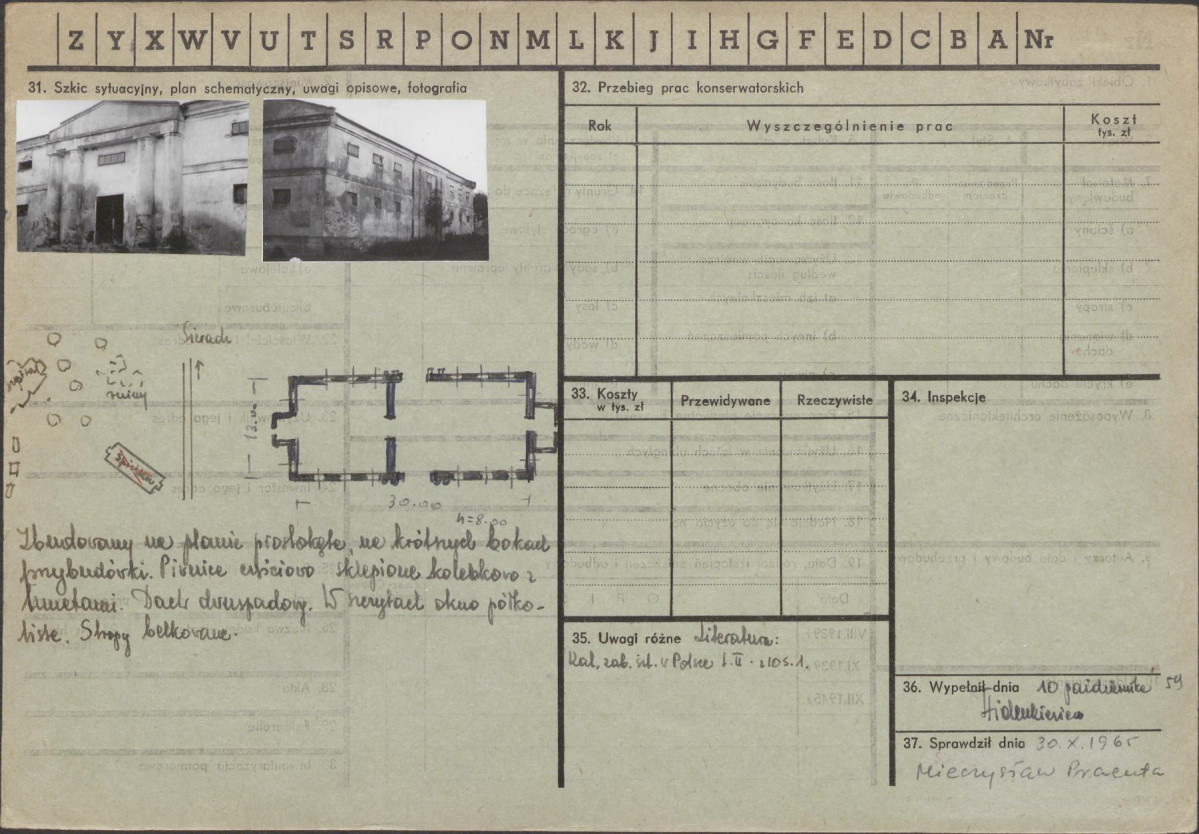 Z Y X W V U T S R P O N M L K J I H G F E D C B A Nr
31. Szkic sytuacyjny, plan schematyczny, uwagi opisowe, fotografia
Sieradz
ruiny
Spichlerz
13.00
30.00
h=8.00
Zbudowany na planie prostokąta, na krótszych bokach
przybudówki. Piwnice częściowo sklepione kolebkowo z
lunetami. Dach dwuspadowy. W szczytach okna półko-
liste. Stropy belkowane.
32. Przebieg prac konserwatorskich
Rok
Wyszczególnienie prac
Koszt
tys. zł
33. Koszty
w tys. zł
Przewidywane
Rzeczywiste
34. Inspekcje
35. Uwagi różne Literatura:
Kat. zab. szt. w Polsce t. II
36. Wypełnił dnia 10 października 59
37. Sprawdził dnia 30.X.1965
Mieczysław Pracuta